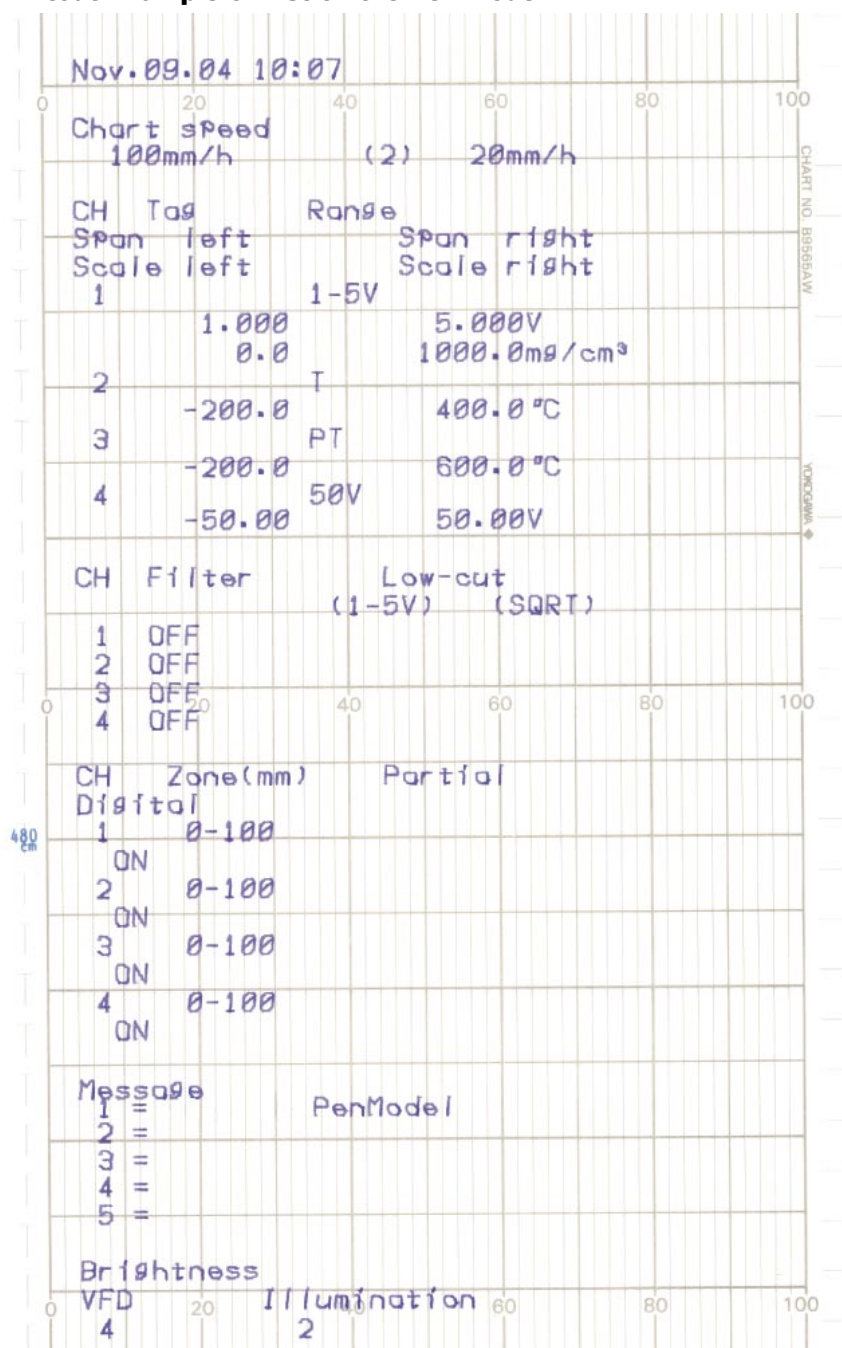 Nov.09.04 10:07
0 20 40 60 80 100
Chart speed
100mm/h (2) 20mm/h
CHART NO. B9565AW
CH Tag Range
Span left Span right
Scale left Scale right
1 1-5V
1.000 5.000V
0.0 1000.0mg/cm³
2 T
-200.0 400.0°C
3 PT
-200.0 600.0°C
4 50V
-50.00 50.00V
YOKOGAWA
CH Filter Low-cut
(1-5V) (SQRT)
1 OFF
2 OFF
3 OFF
0 40 60 80 100
4 OFF
CH Zone(mm) Partial
Digital
480 cm
1 0-100
ON
2 0-100
ON
3 0-100
ON
4 0-100
ON
Message
1 = PenModel
2 =
3 =
4 =
5 =
Brightness
VFD Illumination
0 20 40 60 80 100
4 2